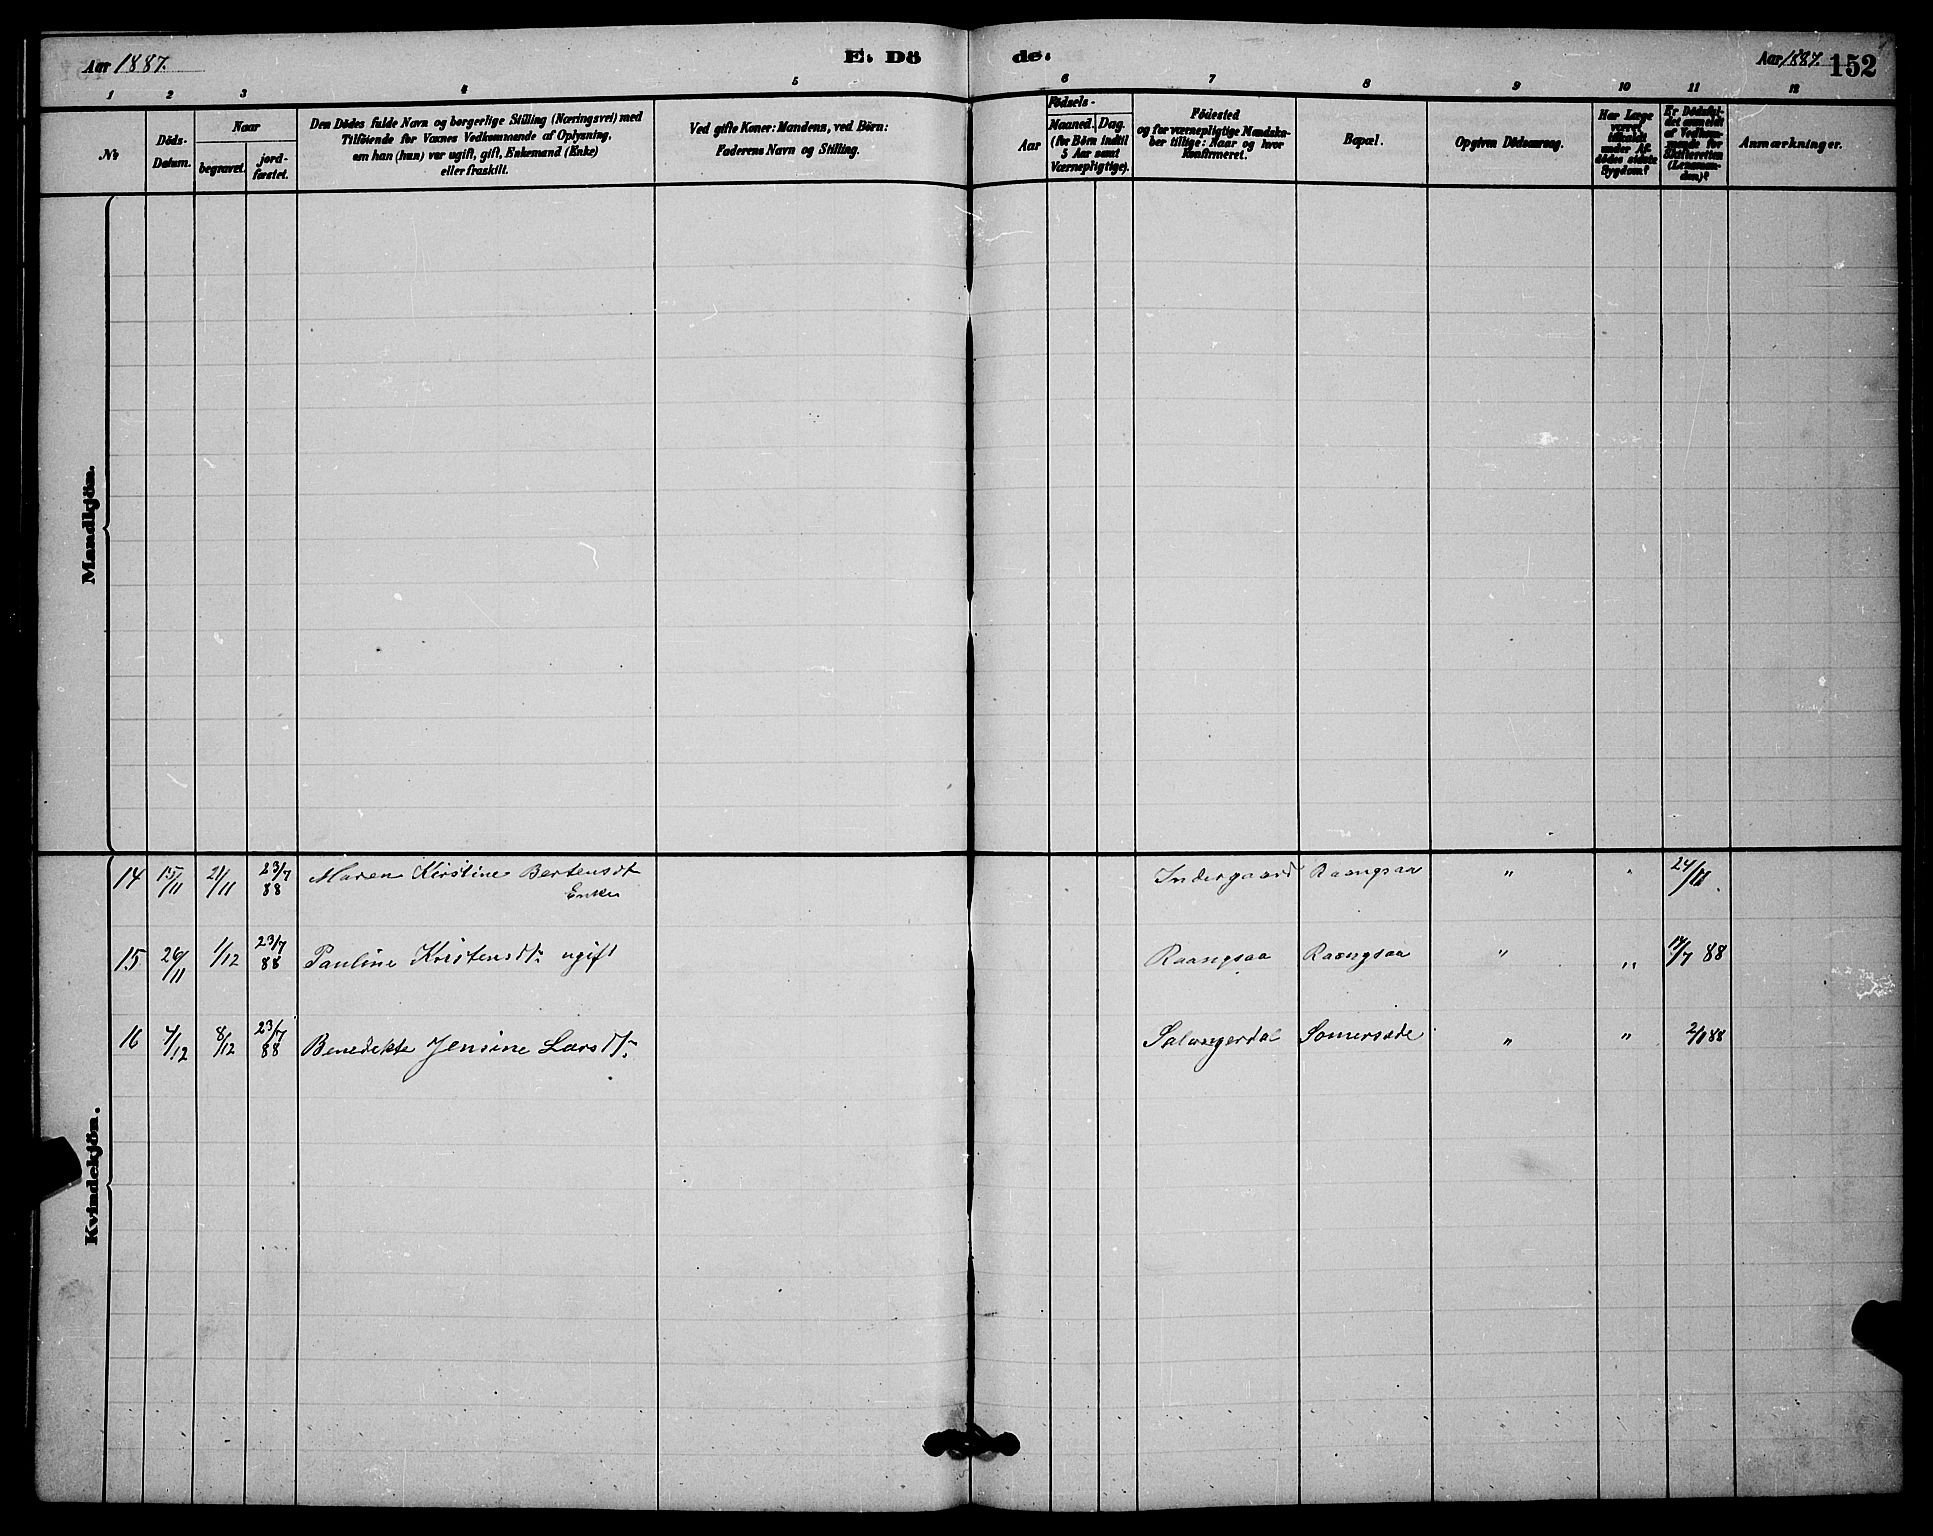 Aar 1887.
E. Döde.
Aar 1887. 152
1 2 3 4 5 6 7 8 9 10 11 12
No
Döds-
Datum.
Naar
begravet.
jord-
fæstet.
Den Dödes fulde Navn og borgerlige Stilling (Næringsvei) med
Tilföiende for Vaxnes Vedkommende af Oplysning,
om han (hun) var ugift, gift, Enkemand (Enke)
eller fraskilt.
Ved gifte Koner: Mandens, ved Börn:
Faderens Navn og Stilling.
Födsels-
Aar
Maaned. Dag.
(for Börn indtil
5 Aar samt
Værnepligtige).
Födested
og for værnepligtige Mandska-
ber tillige: Naar og hvor
konfirmeret.
Bopæl.
Opgiven Dödsaarsag.
Har Læge
været
tilkaldt
under Af-
dödes sidste
Sygdom?
Er Dödsfal-
det anmeldt
af Vedkom-
mende for
Skifteretten
(Lensman-
den)?
Anmærkninger.
Mandkjön.
Kvindekjön.
14 15/11 21/11 23/7 88 Maren Kirstine Bertensdt Enke Indergaard Raangsaa " " 24/11
15 26/11 1/12 23/7 88 Pauline Kristensdt. ugift Raangsaa Raangsaa " " 17/7 88
16 4/12 8/12 23/7 88 Benedekte Jensine Larsdt. Salangerdal Somersæde " " 2/1 88